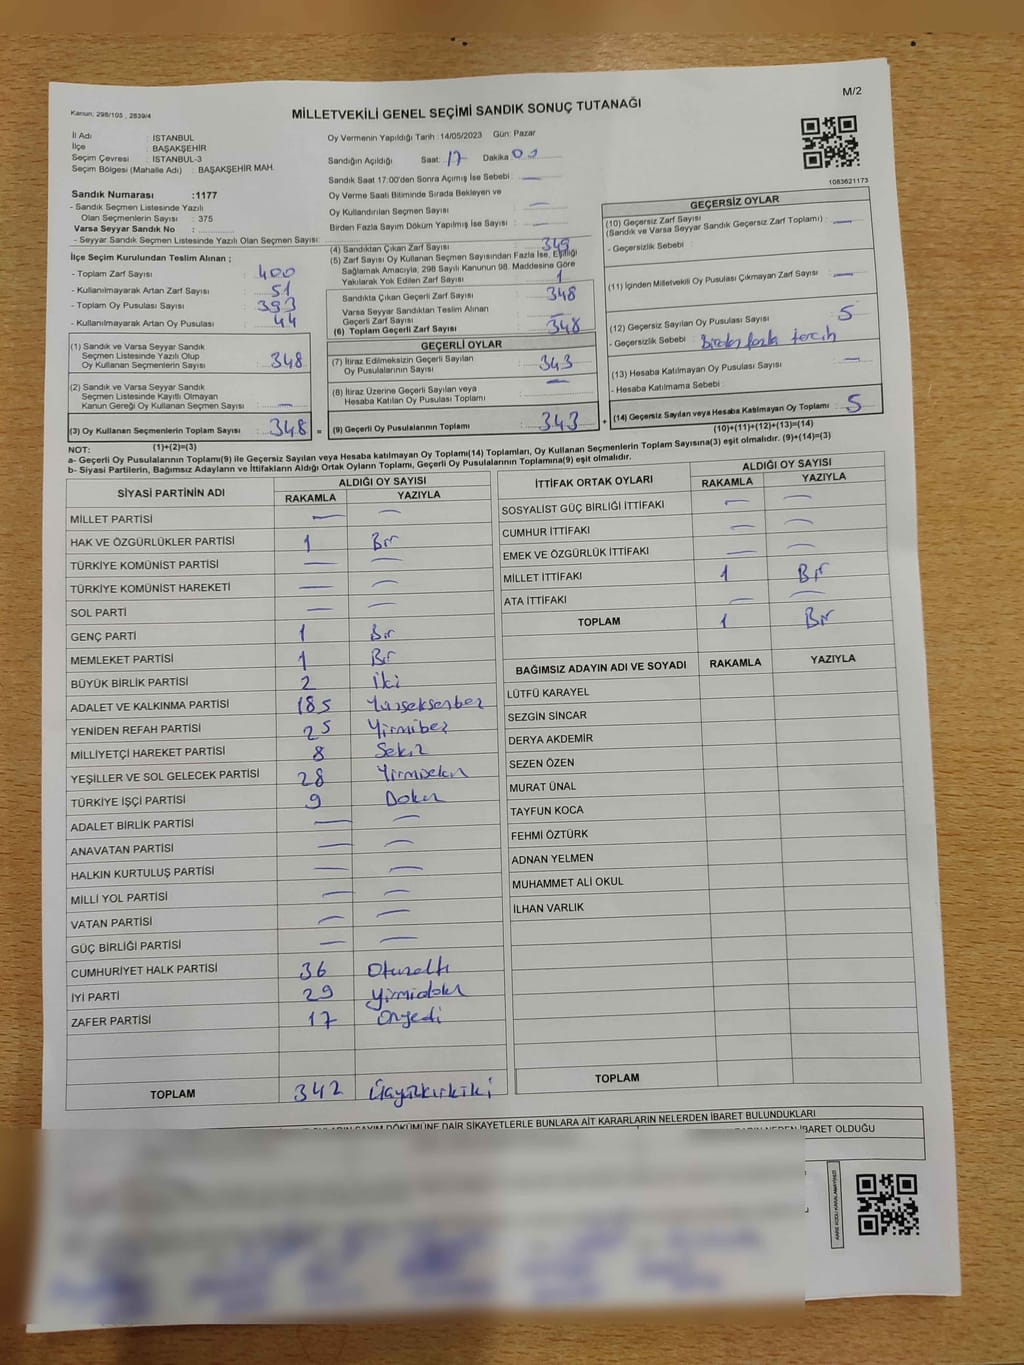 M/2
Kanun; 298/105 , 2839/4
MİLLETVEKİLİ GENEL SEÇİMİ SANDIK SONUÇ TUTANAĞI
İl Adı : İSTANBUL
İlçe : BAŞAKŞEHİR
Seçim Çevresi : İSTANBUL-3
Seçim Bölgesi (Mahalle Adı) : BAŞAKŞEHİR MAH.
Oy Vermenin Yapıldığı Tarih :14/05/2023 Gün: Pazar
Sandığın Açıldığı Saat: 17 Dakika 00
Sandık Saat 17:00'den Sonra Açımış İse Sebebi : —
Oy Verme Saati Bitiminde Sırada Bekleyen ve
Oy Kullandırılan Seçmen Sayısı : —
Birden Fazla Sayım Döküm Yapılmış İse Sayısı : —
1083621173
Sandık Numarası :1177
- Sandık Seçmen Listesinde Yazılı
Olan Seçmenlerin Sayısı : 375
Varsa Seyyar Sandık No :
- Seyyar Sandık Seçmen Listesinde Yazılı Olan Seçmen Sayısı:
İlçe Seçim Kurulundan Teslim Alınan ;
- Toplam Zarf Sayısı : 400
- Kullanılmayarak Artan Zarf Sayısı : 51
- Toplam Oy Pusulası Sayısı : 393
- Kullanılmayarak Artan Oy Pusulası : 44
(1) Sandık ve Varsa Seyyar Sandık
Seçmen Listesinde Yazılı Olup
Oy Kullanan Seçmenlerin Sayısı : 348
(2) Sandık ve Varsa Seyyar Sandık
Seçmen Listesinde Kayıtlı Olmayan
Kanun Gereği Oy Kullanan Seçmen Sayısı : —
(3) Oy Kullanan Seçmenlerin Toplam Sayısı : 348 =
(1)+(2)=(3)
(4) Sandıktan Çıkan Zarf Sayısı : 349
(5) Zarf Sayısı Oy Kullanan Seçmen Sayısından Fazla İse, Eşitliği
Sağlamak Amacıyla, 298 Sayılı Kanunun 98. Maddesine Göre
Yakılarak Yok Edilen Zarf Sayısı : 1
Sandıkta Çıkan Geçerli Zarf Sayısı : 348
Varsa Seyyar Sandıktan Teslim Alınan
Geçerli Zarf Sayısı : —
(6) Toplam Geçerli Zarf Sayısı : 348
GEÇERLİ OYLAR
(7) İtiraz Edilmeksizin Geçerli Sayılan
Oy Pusulalarının Sayısı : 343
(8) İtiraz Üzerine Geçerli Sayılan veya
Hesaba Katılan Oy Pusulası Toplamı : —
(9) Geçerli Oy Pusulalarının Toplamı : 343 +
GEÇERSİZ OYLAR
(10) Geçersiz Zarf Sayısı
(Sandık ve Varsa Seyyar Sandık Geçersiz Zarf Toplamı) : —
- Geçersizlik Sebebi :
(11) İçinden Milletvekili Oy Pusulası Çıkmayan Zarf Sayısı : —
(12) Geçersiz Sayılan Oy Pusulası Sayısı : 5
- Geçersizlik Sebebi : Birden fazla tercih
(13) Hesaba Katılmayan Oy Pusulası Sayısı : —
- Hesaba Katılmama Sebebi :
(14) Geçersiz Sayılan veya Hesaba Katılmayan Oy Toplamı : 5
(10)+(11)+(12)+(13)=(14)
NOT:
a- Geçerli Oy Pusulalarının Toplamı(9) ile Geçersiz Sayılan veya Hesaba katılmayan Oy Toplamı(14) Toplamları, Oy Kullanan Seçmenlerin Toplam Sayısına(3) eşit olmalıdır. (9)+(14)=(3)
b- Siyasi Partilerin, Bağımsız Adayların ve İttifakların Aldığı Ortak Oyların Toplamı, Geçerli Oy Pusulalarının Toplamına(9) eşit olmalıdır.
SİYASİ PARTİNİN ADI ALDIĞI OY SAYISI
RAKAMLA YAZIYLA
MİLLET PARTİSİ — —
HAK VE ÖZGÜRLÜKLER PARTİSİ 1 Bir
TÜRKİYE KOMÜNİST PARTİSİ — —
TÜRKİYE KOMÜNİST HAREKETİ — —
SOL PARTİ — —
GENÇ PARTİ 1 Bir
MEMLEKET PARTİSİ 1 Bir
BÜYÜK BİRLİK PARTİSİ 2 İki
ADALET VE KALKINMA PARTİSİ 185 Yüzseksenbeş
YENİDEN REFAH PARTİSİ 25 Yirmibeş
MİLLİYETÇİ HAREKET PARTİSİ 8 Sekiz
YEŞİLLER VE SOL GELECEK PARTİSİ 28 Yirmisekiz
TÜRKİYE İŞÇİ PARTİSİ 9 Dokuz
ADALET BİRLİK PARTİSİ — —
ANAVATAN PARTİSİ — —
HALKIN KURTULUŞ PARTİSİ — —
MİLLİ YOL PARTİSİ — —
VATAN PARTİSİ — —
GÜÇ BİRLİĞİ PARTİSİ — —
CUMHURİYET HALK PARTİSİ 36 Otuzaltı
İYİ PARTİ 29 Yirmidokuz
ZAFER PARTİSİ 17 Onyedi
TOPLAM 342 Üçyüzkırkiki
İTTİFAK ORTAK OYLARI ALDIĞI OY SAYISI
RAKAMLA YAZIYLA
SOSYALİST GÜÇ BİRLİĞİ İTTİFAKI — —
CUMHUR İTTİFAKI — —
EMEK VE ÖZGÜRLÜK İTTİFAKI — —
MİLLET İTTİFAKI 1 Bir
ATA İTTİFAKI — —
TOPLAM 1 Bir
BAĞIMSIZ ADAYIN ADI VE SOYADI RAKAMLA YAZIYLA
LÜTFÜ KARAYEL
SEZGİN SİNCAR
DERYA AKDEMİR
SEZEN ÖZEN
MURAT ÜNAL
TAYFUN KOCA
FEHMİ ÖZTÜRK
ADNAN YELMEN
MUHAMMET ALİ OKUL
İLHAN VARLIK
TOPLAM
SAYIM DÖKÜMÜNE DAİR ŞİKAYETLERLE BUNLARA AİT KARARLARIN NELERDEN İBARET BULUNDUKLARI
NEDEN İBARET OLDUĞU